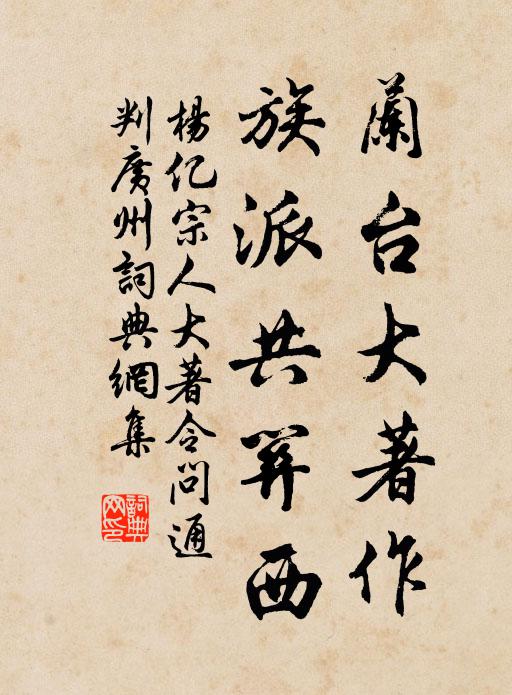 蘭台大著作
族派共關西
楊亿宗人大著令問通
判廣州詞典網集
詞典
网印